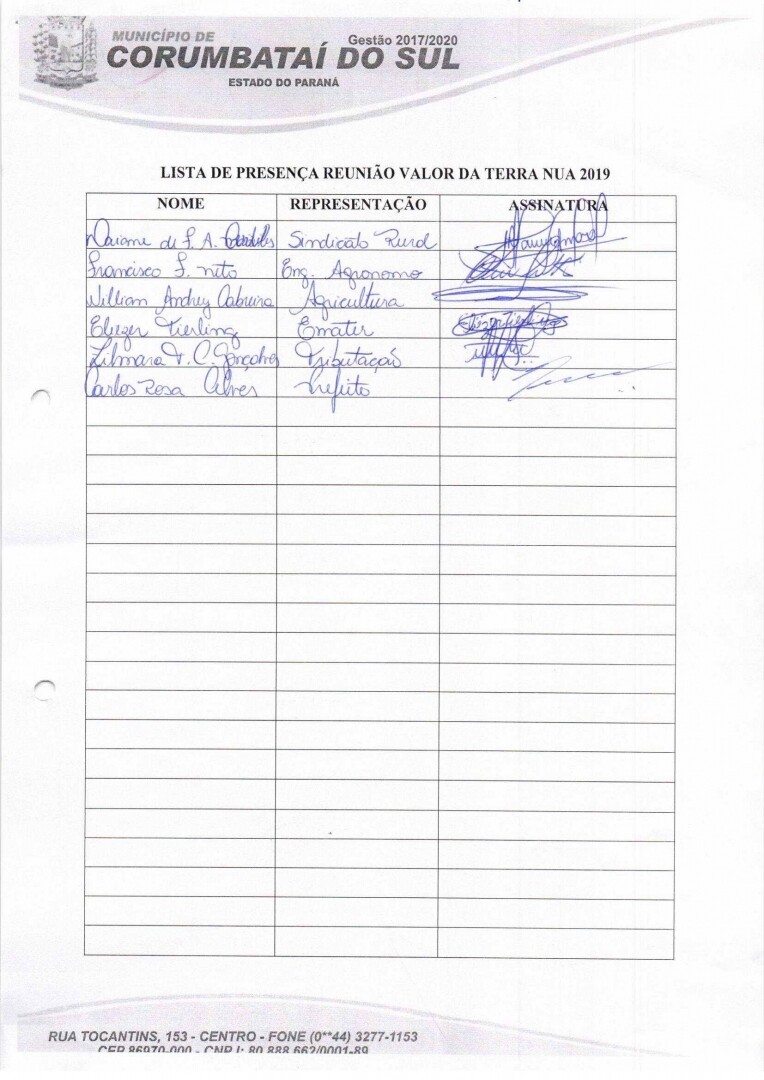 MUNICÍPIO DE
Gestão 2017/2020
CORUMBATAÍ DO SUL
ESTADO DO PARANÁ
LISTA DE PRESENÇA REUNIÃO VALOR DA TERRA NUA 2019
NOME REPRESENTAÇÃO ASSINATURA
Daiane de F. A. Sindicato Rural
Francisco F. Neto Eng. Agronomo
William Andrey Cabreira Agricultura
Eliezer Fierling Emater
Zilmara C. Gonçalves Tributação
Carlos Rosa Alves Prefeito
RUA TOCANTINS, 153 - CENTRO - FONE (0**44) 3277-1153
CEP 86970-000 - CNPJ: 80.888.662/0001-89